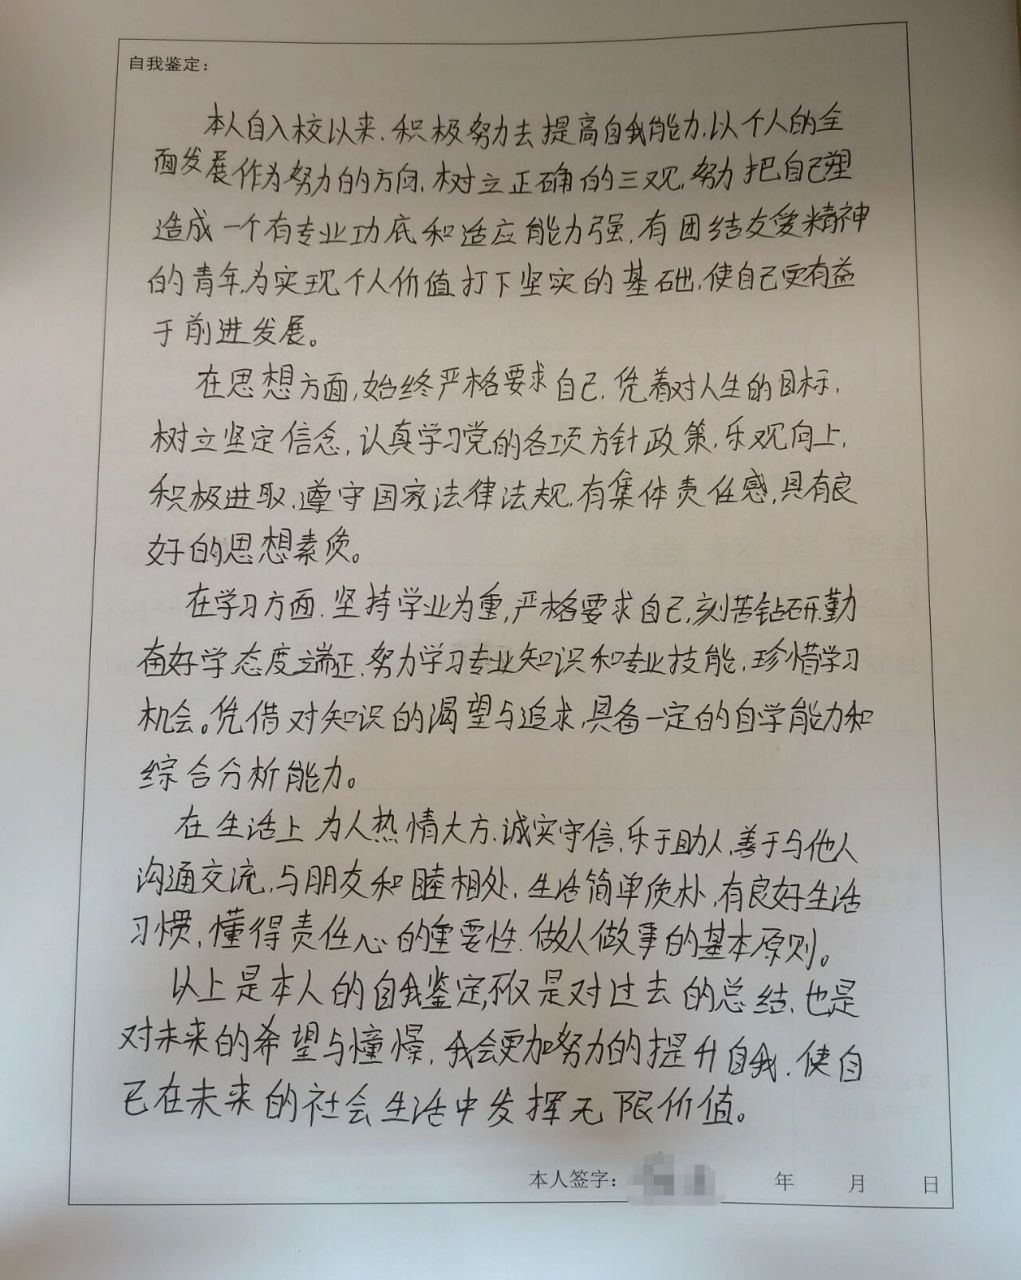 自我鉴定：
本人自入校以来，积极努力去提高自我能力，以个人的全
面发展作为努力的方向，树立正确的三观，努力把自己塑
造成一个有专业功底和适应能力强，有团结友爱精神
的青年，为实现个人价值打下坚实的基础，使自己更有益
于前进发展。
在思想方面，始终严格要求自己，凭着对人生的目标，
树立坚定信念，认真学习党的各项方针政策，乐观向上，
积极进取，遵守国家法律法规，有集体责任感，具有良
好的思想素质。
在学习方面，坚持学业为重，严格要求自己，刻苦钻研，勤
奋好学，态度端正，努力学习专业知识和专业技能，珍惜学习
机会。凭借对知识的渴望与追求，具备一定的自学能力和
综合分析能力。
在生活上，为人热情大方，诚实守信，乐于助人，善于与他人
沟通交流，与朋友和睦相处，生活简单质朴，有良好生活
习惯，懂得责任心的重要性，做人做事的基本原则。
以上是本人的自我鉴定，不仅是对过去的总结，也是
对未来的希望与憧憬，我会更加努力的提升自我，使自
己在未来的社会生活中发挥无限价值。
本人签字： 年 月 日